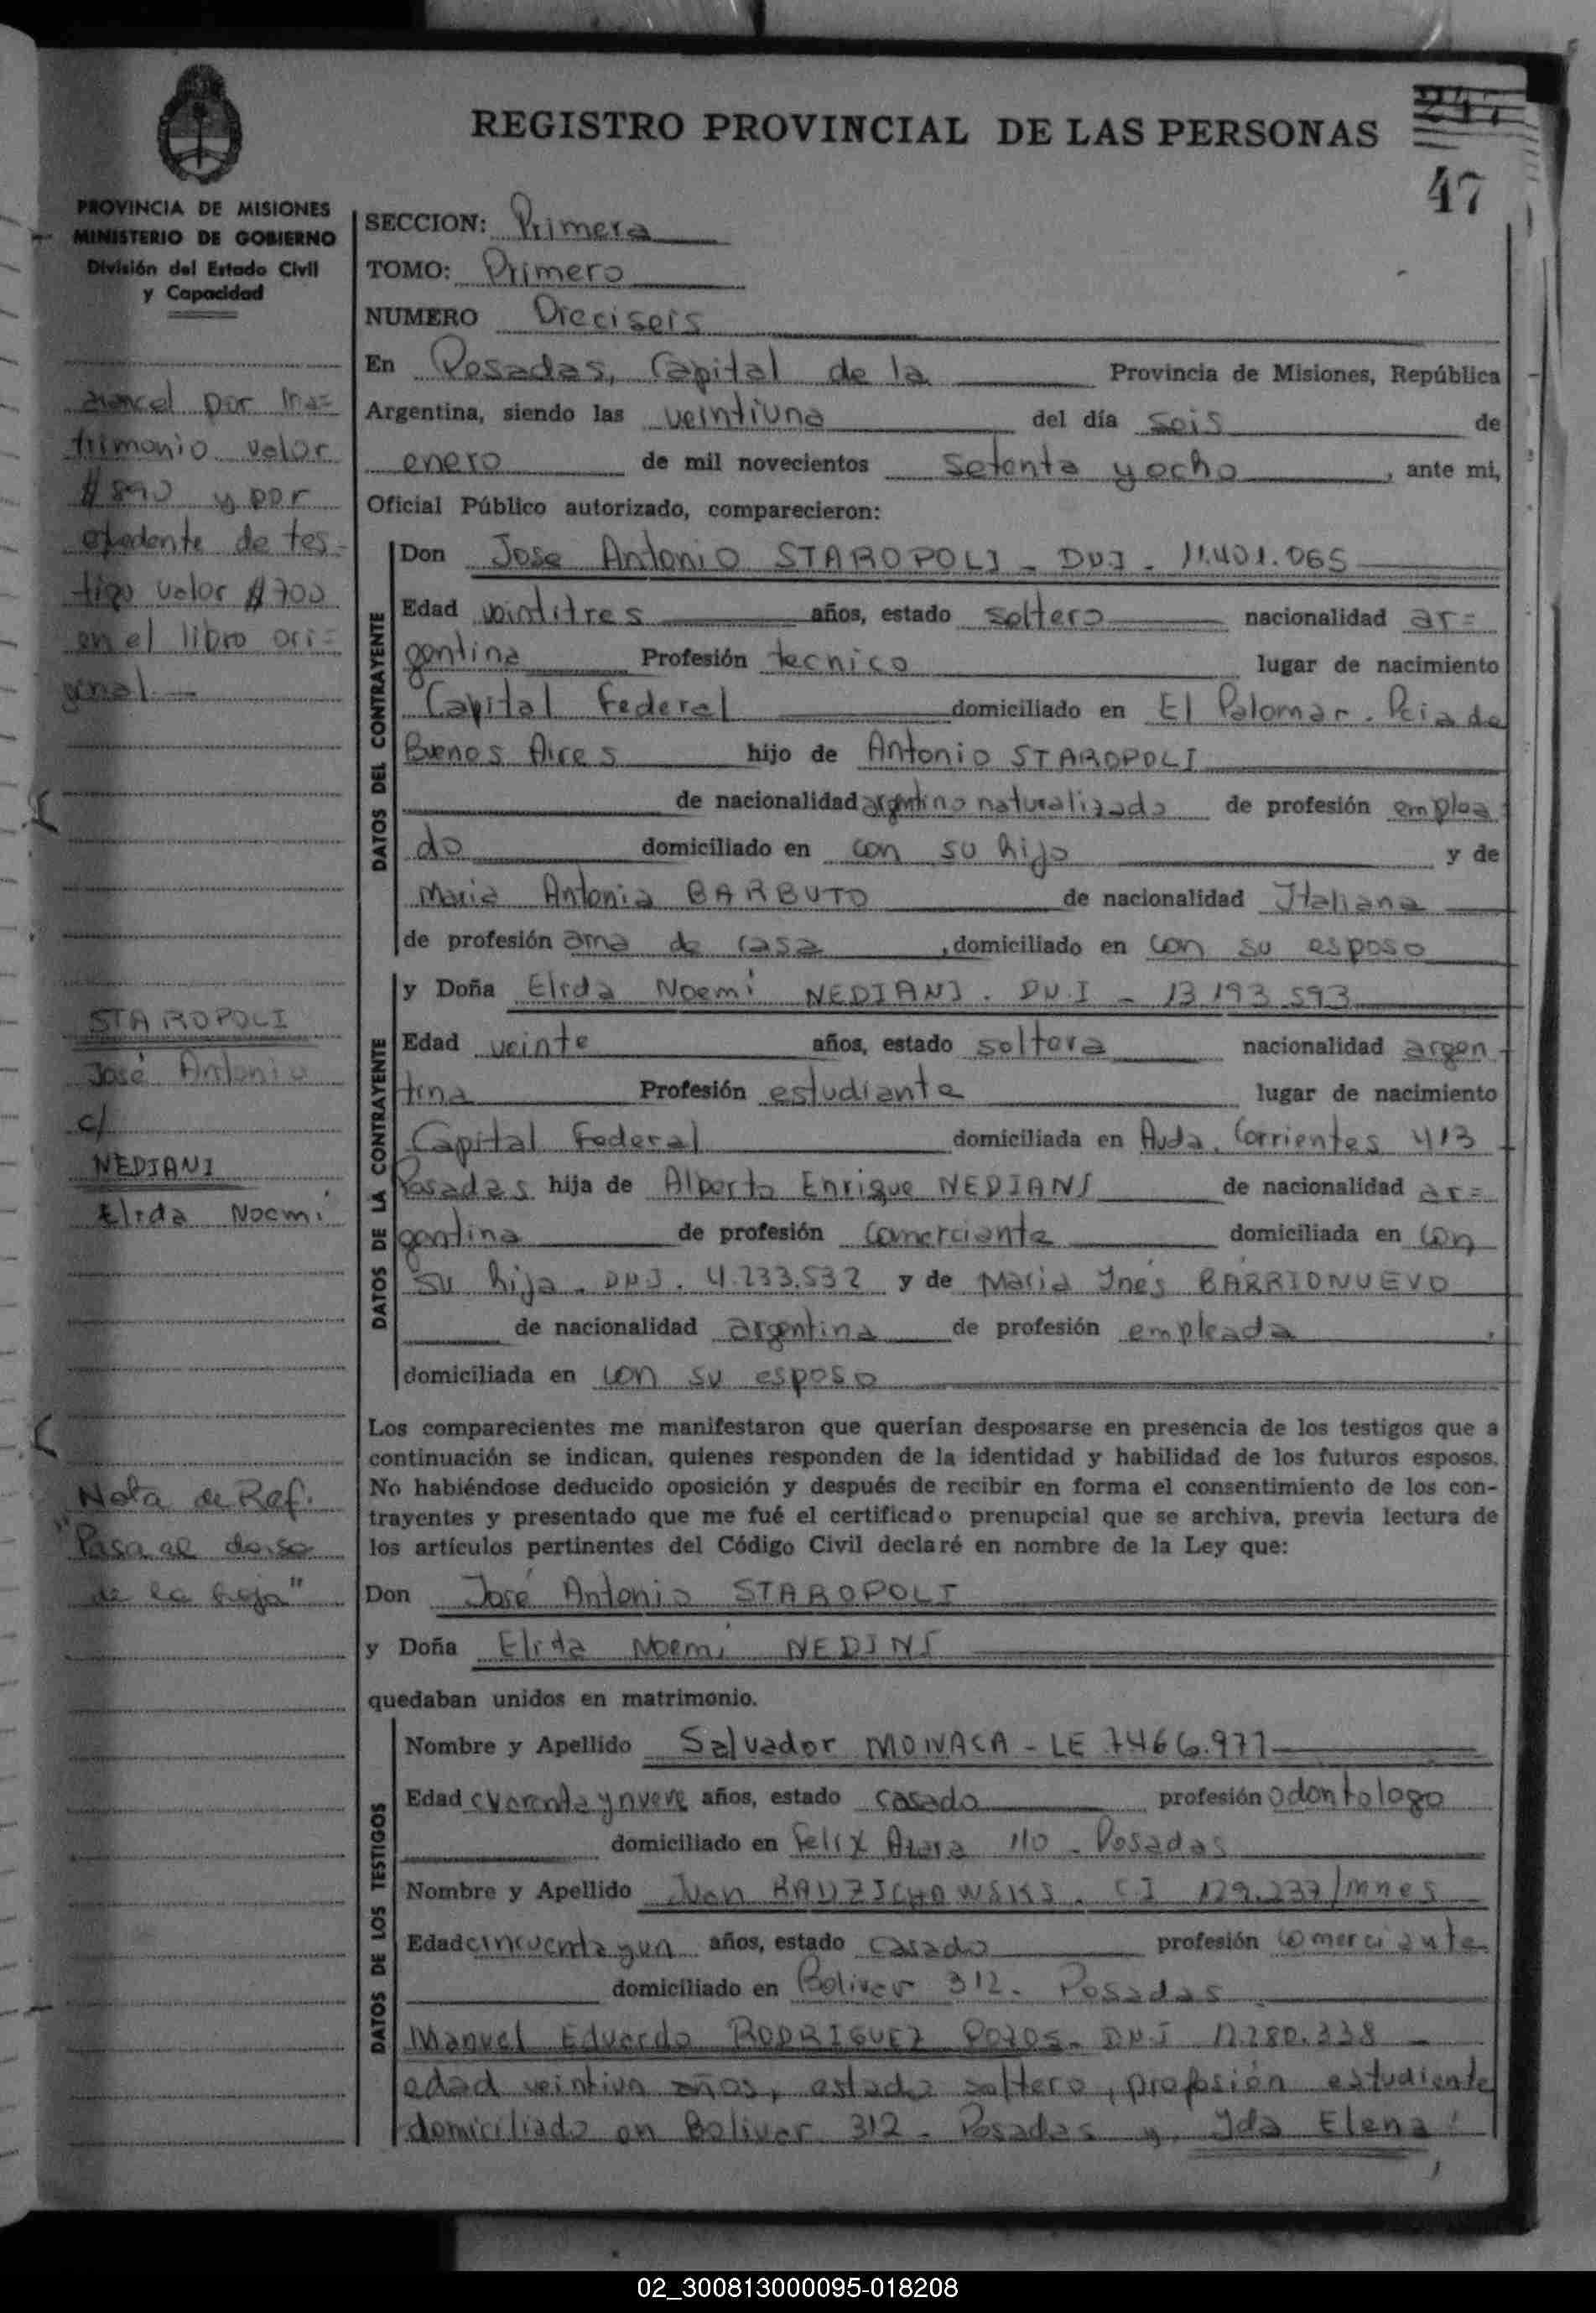 REGISTRO PROVINCIAL DE LAS PERSONAS
47
PROVINCIA DE MISIONES
MINISTERIO DE GOBIERNO
División del Estado Civil
y Capacidad
SECCION: Primera
TOMO: Primero
NUMERO Dieciseis
En Posadas, Capital de la Provincia de Misiones, República
Argentina, siendo las veintiuna del día seis de
enero de mil novecientos setenta y ocho, ante mi,
Oficial Público autorizado, comparecieron:
DATOS DEL CONTRAYENTE
Don Jose Antonio STAROPOLI - DNI - 11.401.065
Edad veintitres años, estado soltero nacionalidad ar=
gentina Profesión tecnico lugar de nacimiento
Capital Federal domiciliado en El Palomar. Pcia de
Buenos Aires hijo de Antonio STAROPOLI
de nacionalidad argentino naturalizado de profesión emplea
do domiciliado en con su hijo y de
Maria Antonia BARBUTO de nacionalidad Italiana
de profesión ama de casa, domiciliado en con su esposo
DATOS DE LA CONTRAYENTE
y Doña Elida Noemi NEDIANI. DNI - 13.193.593
Edad veinte años, estado soltera nacionalidad argen
tina Profesión estudiante lugar de nacimiento
Capital Federal domiciliada en Avda. Corrientes 413
Posadas hija de Alberto Enrique NEDIANI de nacionalidad ar=
gentina de profesión comerciante domiciliada en con
su hija. DNI. 4.233.532 y de Maria Inés BARRIONUEVO
de nacionalidad argentina de profesión empleada,
domiciliada en con su esposo
Los comparecientes me manifestaron que querían desposarse en presencia de los testigos que a
continuación se indican, quienes responden de la identidad y habilidad de los futuros esposos.
No habiéndose deducido oposición y después de recibir en forma el consentimiento de los con-
trayentes y presentado que me fué el certificado prenupcial que se archiva, previa lectura de
los artículos pertinentes del Código Civil declaré en nombre de la Ley que:
Don José Antonio STAROPOLI
y Doña Elida Noemi NEDINI
quedaban unidos en matrimonio.
DATOS DE LOS TESTIGOS
Nombre y Apellido Salvador MONACA - LE 7466.977
Edad cuarenta y nueve años, estado casado profesión odontologo
domiciliado en Felix Azara 110 - Posadas
Nombre y Apellido Juan CI 129.237/mnes
Edad cincuenta y un años, estado casado profesión comerciante
domiciliado en Bolivar 312. Posadas
Manuel Eduardo RODRIGUEZ POZOS - DNI 12.280.338 -
edad veintiun años, estado soltero, profesión estudiente
domiciliado en Bolivar 312 - Posadas y Ida Elena
arancel por ma=
trimonio valor
$890 y por
exedente de tes-
tigo valor $700
en el libro ori=
ginal. -
STAROPOLI
José Antonio
c/
NEDIANI
Elida Noemi
Nota de Ref.
"Pasa al dorso
de la hoja"
02_300813000095-018208